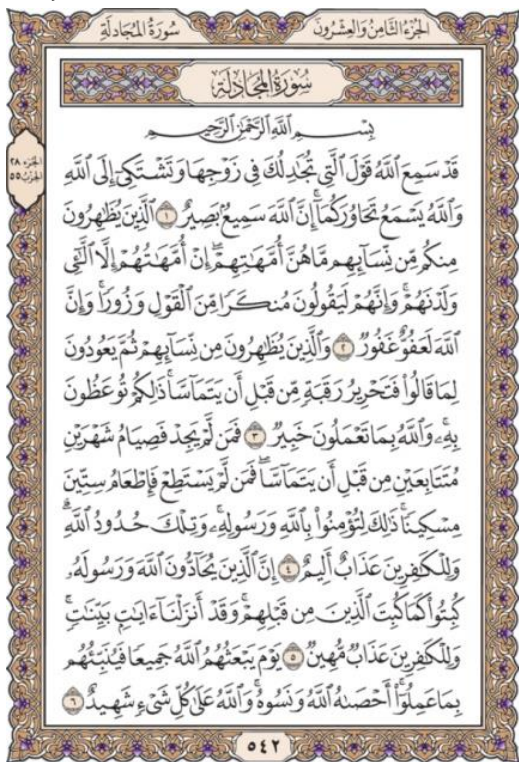 الجزء الثامن والعشرون
سورة المجادلة
سُورَةُ المُجَادلَةِ
الجزء ٢٨
الحزب ٥٥
بِسْمِ ٱللَّهِ ٱلرَّحْمَٰنِ ٱلرَّحِيمِ
قَدْ سَمِعَ ٱللَّهُ قَوْلَ ٱلَّتِى تُجَٰدِلُكَ فِى زَوْجِهَا وَتَشْتَكِىٓ إِلَى ٱللَّهِ
وَٱللَّهُ يَسْمَعُ تَحَاوُرَكُمَآ ۚ إِنَّ ٱللَّهَ سَمِيعٌۢ بَصِيرٌ ١ ٱلَّذِينَ يُظَٰهِرُونَ
مِنكُم مِّن نِّسَآئِهِم مَّا هُنَّ أُمَّهَٰتِهِمْ ۖ إِنْ أُمَّهَٰتُهُمْ إِلَّا ٱلَّٰٓـِٔى
وَلَدْنَهُمْ ۚ وَإِنَّهُمْ لَيَقُولُونَ مُنكَرًا مِّنَ ٱلْقَوْلِ وَزُورًا ۚ وَإِنَّ
ٱللَّهَ لَعَفُوٌّ غَفُورٌ ٢ وَٱلَّذِينَ يُظَٰهِرُونَ مِن نِّسَآئِهِمْ ثُمَّ يَعُودُونَ
لِمَا قَالُوا۟ فَتَحْرِيرُ رَقَبَةٍ مِّن قَبْلِ أَن يَتَمَآسَّا ۚ ذَٰلِكُمْ تُوعَظُونَ
بِهِۦ ۚ وَٱللَّهُ بِمَا تَعْمَلُونَ خَبِيرٌ ٣ فَمَن لَّمْ يَجِدْ فَصِيَامُ شَهْرَيْنِ
مُتَتَابِعَيْنِ مِن قَبْلِ أَن يَتَمَآسَّا ۖ فَمَن لَّمْ يَسْتَطِعْ فَإِطْعَامُ سِتِّينَ
مِسْكِينًا ۚ ذَٰلِكَ لِتُؤْمِنُوا۟ بِٱللَّهِ وَرَسُولِهِۦ ۚ وَتِلْكَ حُدُودُ ٱللَّهِ ۗ
وَلِلْكَٰفِرِينَ عَذَابٌ أَلِيمٌ ٤ إِنَّ ٱلَّذِينَ يُحَآدُّونَ ٱللَّهَ وَرَسُولَهُۥ
كُبِتُوا۟ كَمَا كُبِتَ ٱلَّذِينَ مِن قَبْلِهِمْ ۚ وَقَدْ أَنزَلْنَآ ءَايَٰتٍۭ بَيِّنَٰتٍ ۚ
وَلِلْكَٰفِرِينَ عَذَابٌ مُّهِينٌ ٥ يَوْمَ يَبْعَثُهُمُ ٱللَّهُ جَمِيعًا فَيُنَبِّئُهُم
بِمَا عَمِلُوٓا۟ ۚ أَحْصَىٰهُ ٱللَّهُ وَنَسُوهُ ۚ وَٱللَّهُ عَلَىٰ كُلِّ شَىْءٍ شَهِيدٌ ٦
٥٤٢